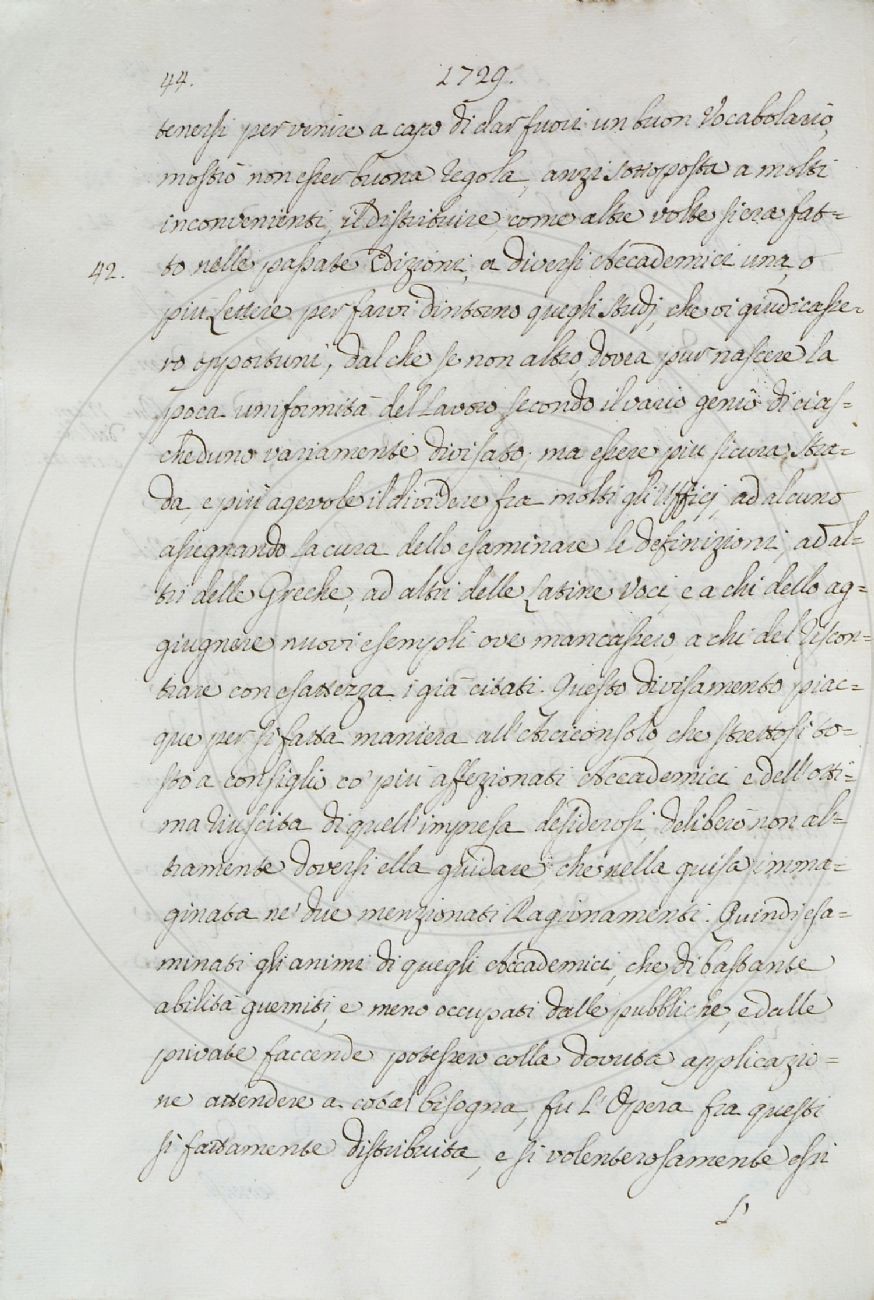 44.
1729.
tenersi per venire a capo di dar fuori un buon Vocabolario,
mostrò non esser buona regola, anzi sottoposta a molti
inconvenienti, il distribuire, come altre volte s'era fat=
42.
to nelle passate Edizioni, a diversi Accademici una, o
più Lettere per farvi dintorno quegli studj, che vi giudicasse-
ro opportuni, dal che se non altro dovea pur nascere la
poca uniformità del Lavoro, secondo il vario genio di cias=
cheduno variamente divisato; ma essere più sicura stra=
da, e più agevole il dividere fra molti gli Uffizj, ad alcuno
assegnando la cura dello esaminare le definizioni, ad al=
tri delle Greche, ad altri delle Latine Voci, e a chi dello ag=
giugnere nuovi esempli ove mancassero, a chi del riscon=
trare con esattezza i già citati. Questo divisamento piac=
que per sì fatta maniera all'Arciconsolo, che strettosi to=
sto a consiglio co' più affezionati Accademici e dell'otti=
ma riuscita di quell'impresa desiderosi, deliberò non al=
tramente doversi ella guidare, che nella guisa imma=
ginata ne' due menzionati Ragionamenti. Quindi esa=
minati gli animi di quegli Accademici, che di bastante
abilità guerniti, e meno occupati dalle pubbliche, e dalle
private faccende potessero colla dovuta applicazio=
ne attendere a cotal bisogna, fu l'Opera fra questi
sì fattamente distribuita, e sì volenterosamente essi